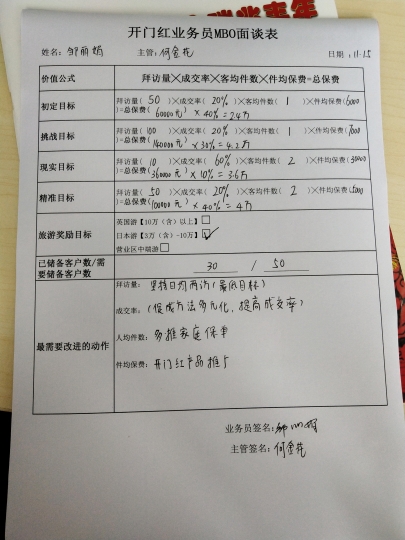 开门红业务员MBO面谈表
姓名：邹丽娟 主管：何金花 日期：11-15
价值公式 拜访量╳成交率╳客均件数╳件均保费=总保费
初定目标 拜访量（50）╳成交率（20%）╳客均件数（1）╳件均保费（6000）
=总保费（60000元）×40%=2.4万
挑战目标 拜访量（100）╳成交率（20%）╳客均件数（1）╳件均保费（7000）
=总保费（140000元）×30%=4.2万
现实目标 拜访量（10）╳成交率（60%）╳客均件数（2）╳件均保费（30000）
=总保费（360000元）×10%=3.6万
精准目标 拜访量（50）╳成交率（20%）╳客均件数（2）╳件均保费（5000）
=总保费（100000元）×40%=4万
旅游奖励目标
英国游【10万（含）以上】□
日本游【3万（含）-10万】☑
营业区中端游□
已储备客户数/需要储备客户数 30 / 50
最需要改进的动作
拜访量：坚持日均两访（最低目标）
成交率：（促成方法多元化，提高成交率）
人均件数：多推家庭保单
件均保费：开门红产品推广
业务员签名：
主管签名：何金花